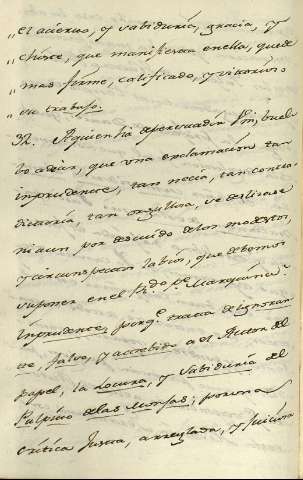 „ el acierto, y sabiduría, gracia, y
„ chiste, que manifiesta en ella, quede
„ mas firme, calificado, y victorioso
„ su trabajo.
32. A quien ha de persuadir Vm, buel-
bo a decir, que una exclamacion tan
imprudente, tan necia, tan contra-
dictoria, tan orgullosa, se deslizase
ni aun por descuido de los modestos,
y circunspectos labios, que debemos
suponer en el R.do P.e Marquina?
Imprudente, porq.e trata de ignoran
te, falso, y atrevido a el Autor del
papel, la Locura, y Sabiduría del
Pulpito de las Monjas; por una
critica Justa, arreglada, y juiciosa